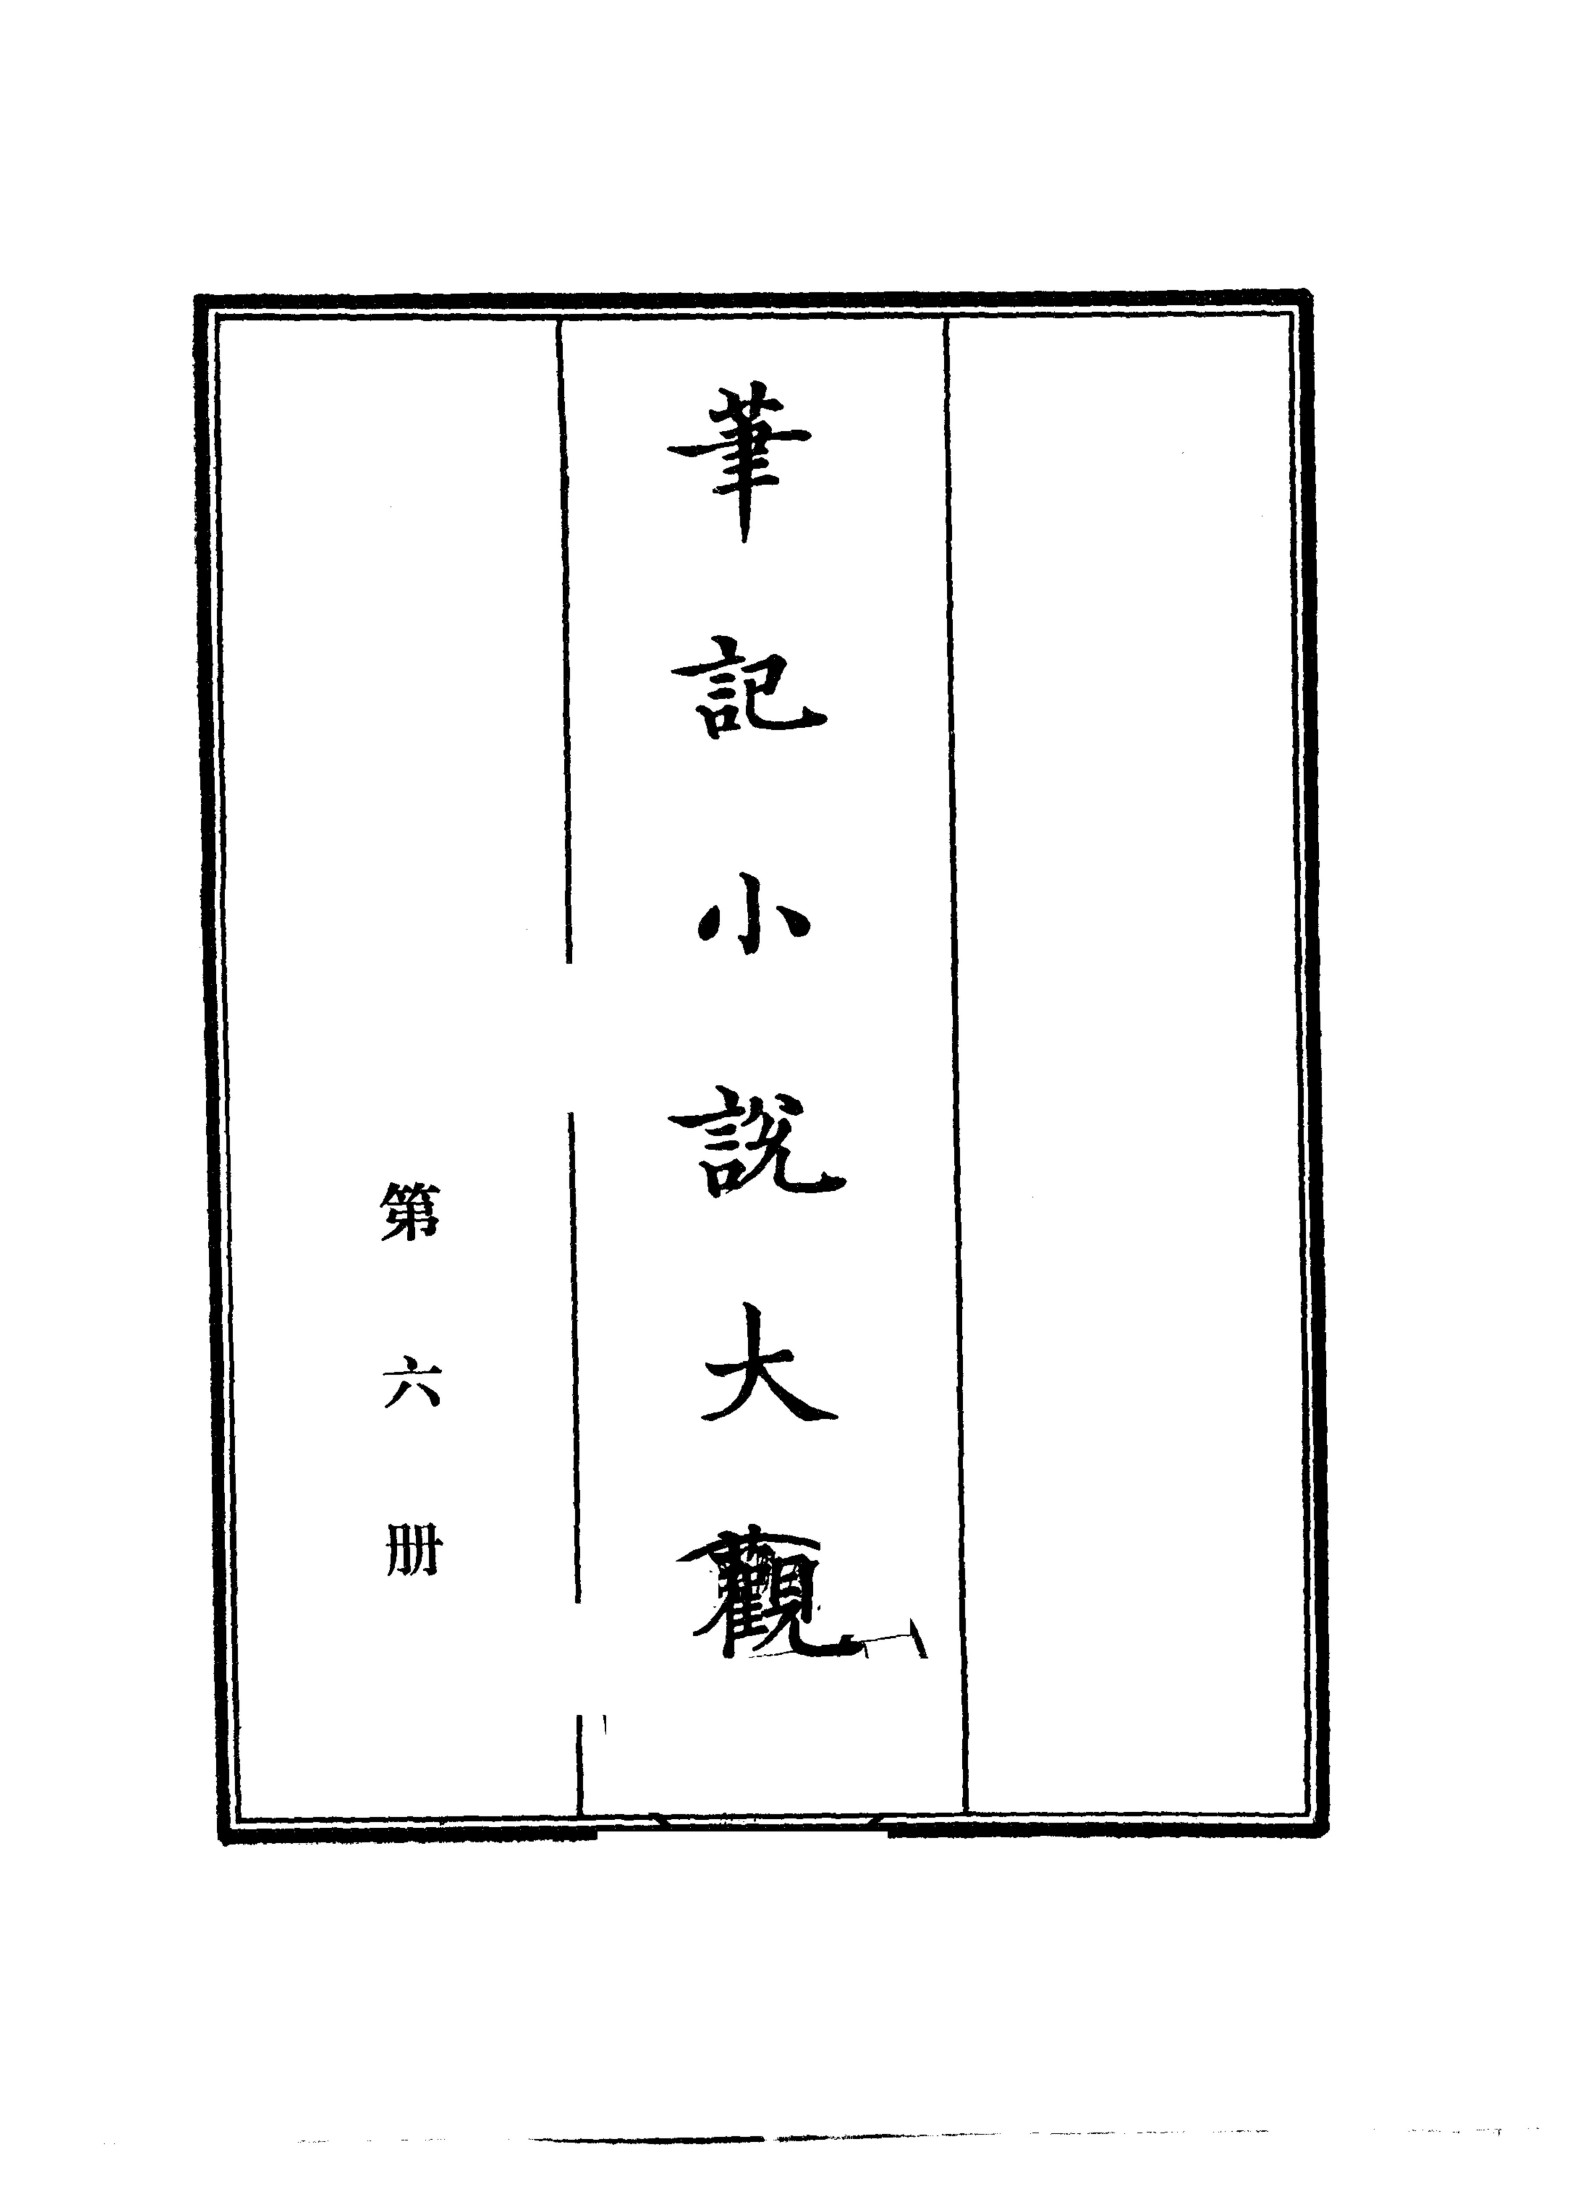 筆記小說大觀
第六册